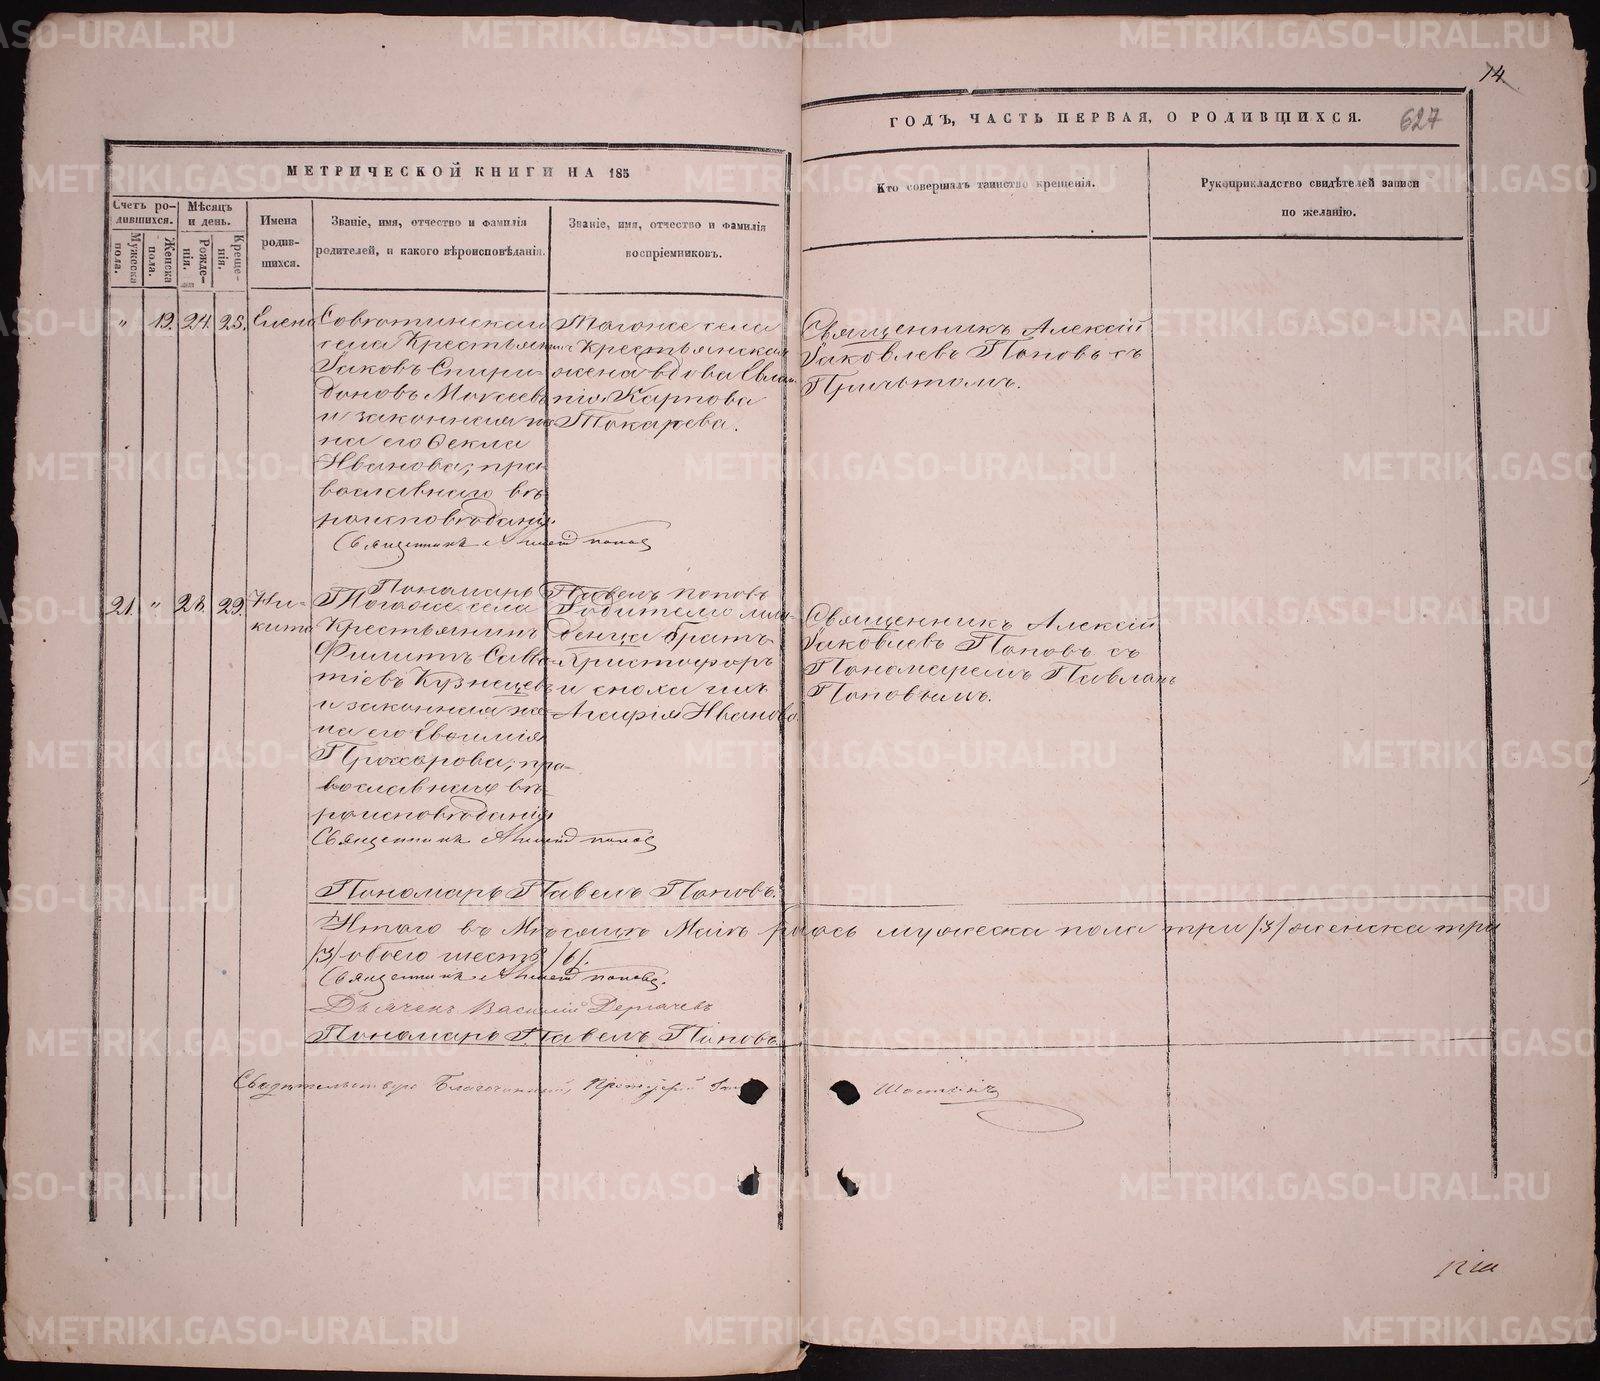 14
627
МЕТРИЧЕСКОЙ КНИГИ НА 185
ГОДЪ, ЧАСТЬ ПЕРВАЯ, О РОДИВШИХСЯ.
Счетъ родившихся.
Мужеска пола.
Женска пола.
Мѣсяцъ и день.
Рожденія.
Крещенія.
Имена родившихся.
Званіе, имя, отчество и фамилія
родителей, и какого вѣроисповѣданія.
Званіе, имя, отчество и фамилія
воспріемниковъ.
Кто совершалъ таинство крещенія.
Рукоприкладство свидѣтелей записи
по желанію.
" 19. 24. 25. Елена
села Крестьянинъ
Іаковъ Спири-
доновъ Моисеевъ
и законная же-
на его Ѳекла
Иванова; пра-
вославнаго вѣ-
роисповѣданія.
Священникъ Алексій Попов
Тогоже села
Крестьянская
жена вдова Евла-
пія Карпова
Токарева.
Священникъ Алексій
Іаковлевъ Поповъ съ
Причтомъ.
Пономарь Павелъ Попов
21. " 28. 29. Ни-
кита
Тогоже села
Крестьянинъ
Филиппъ Савва-
тіевъ Кузнецевъ
и законная же-
на его Евѳимія
Прохорова; пра-
вославнаго вѣ-
роисповѣданія
Священникъ Алексій Попов
Родителю мла-
денца братъ
Христофоръ
и сноха имъ
Агафія Иванова
Священникъ Алексій
Іаковлевъ Поповъ съ
Пономаремъ Павломъ
Поповымъ.
Пономарь Павелъ Поповъ.
Итого въ Мѣсяцѣ Маіѣ р. мужеска пола три /3/ женска три
/3/ обоего шесть /6/.
Священникъ Алексій Поповъ.
Дьячекъ Василій Дергачевъ
Пономарь Павелъ Поповъ.
Свидѣтельствовалъ Благочинный, Протоіерей
METRIKI.GASO-URAL.RU